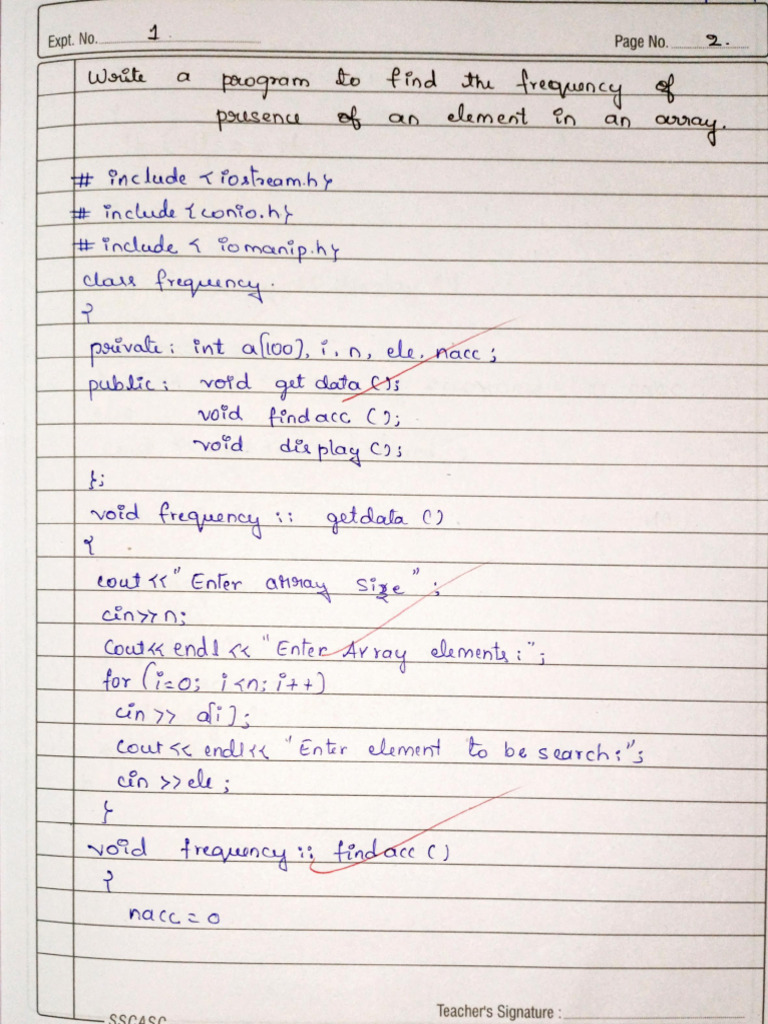 Expt. No. 1
Page No. 2.
Write a program to find the frequency of
presence of an element in an array.
# include <iostream.h>
# include <conio.h>
# include < iomanip.h>
class frequency.
{
private: int a[100], i, n, ele, nacc;
public: void get data ();
void find acc ();
void display ();
};
void frequency :: getdata ()
{
cout << "Enter array size" ;
cin>>n;
Cout<< endl << "Enter Array elements:";
for (i=0; i<n; i++)
cin >> a[i];
cout << endl << "Enter element to be search:";
cin >>ele ;
}
void frequency :: find acc ()
{
nacc = 0
Teacher's Signature :
SSCASC